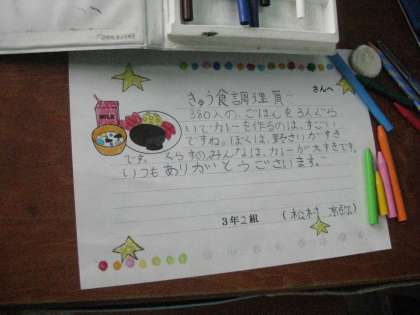 さんへ
きゅう食調理員
380人の、ごはんを3人ぐら
いでカレーを作るのは、すごい
ですね。ぼくは、野さいがすき
です。くらすのみんなは、カレーが大すきです。
いつもありがとうございます。
3年2組
(松村
MILK